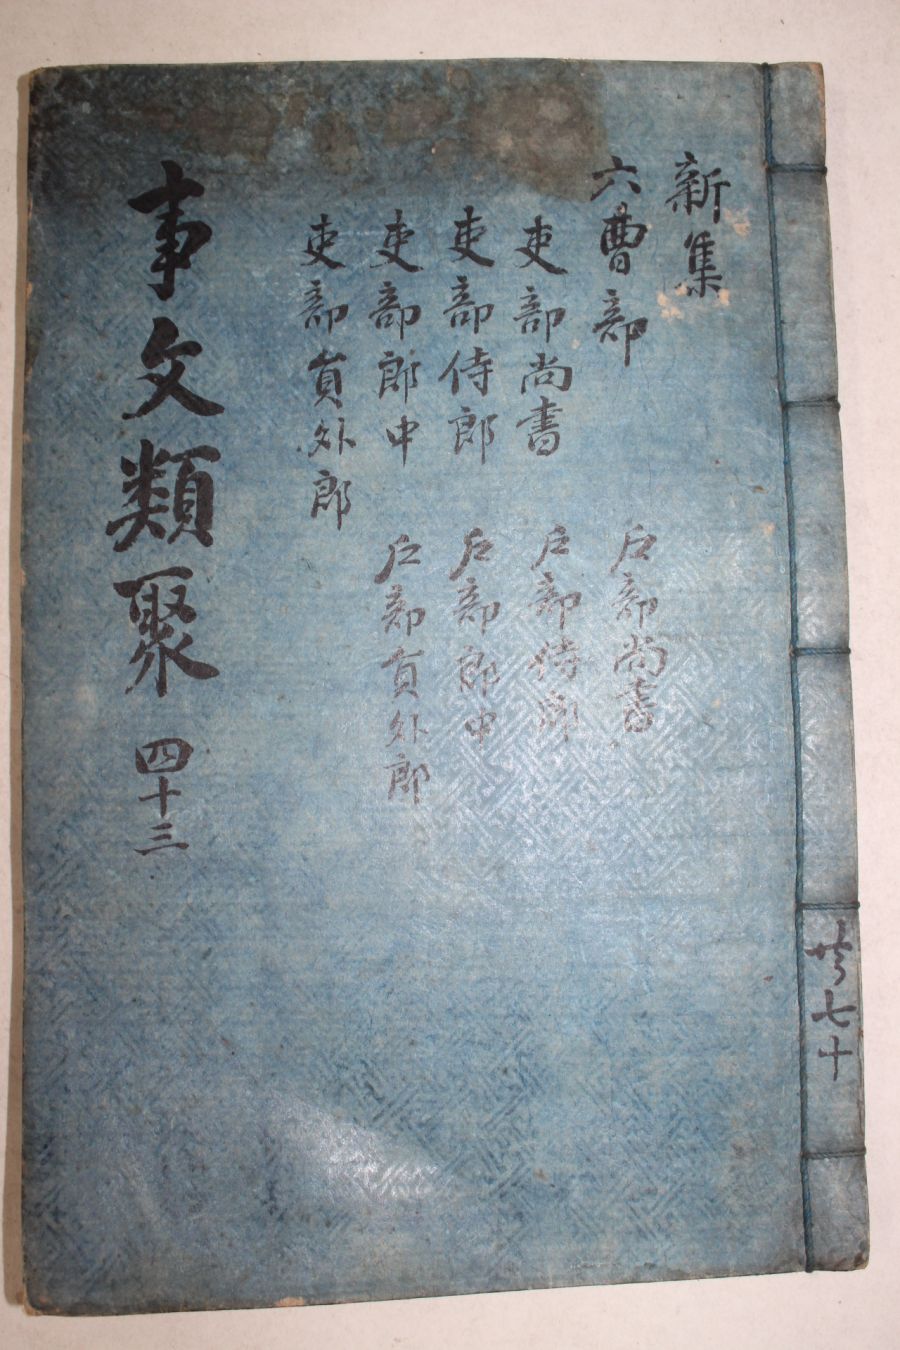 新集
六曹部
吏部尚書
吏部侍郎
吏部郎中
吏部員外郎
戶部尚書
戶部侍郎
戶部郎中
戶部員外郎
事文類聚 四十三
共七十